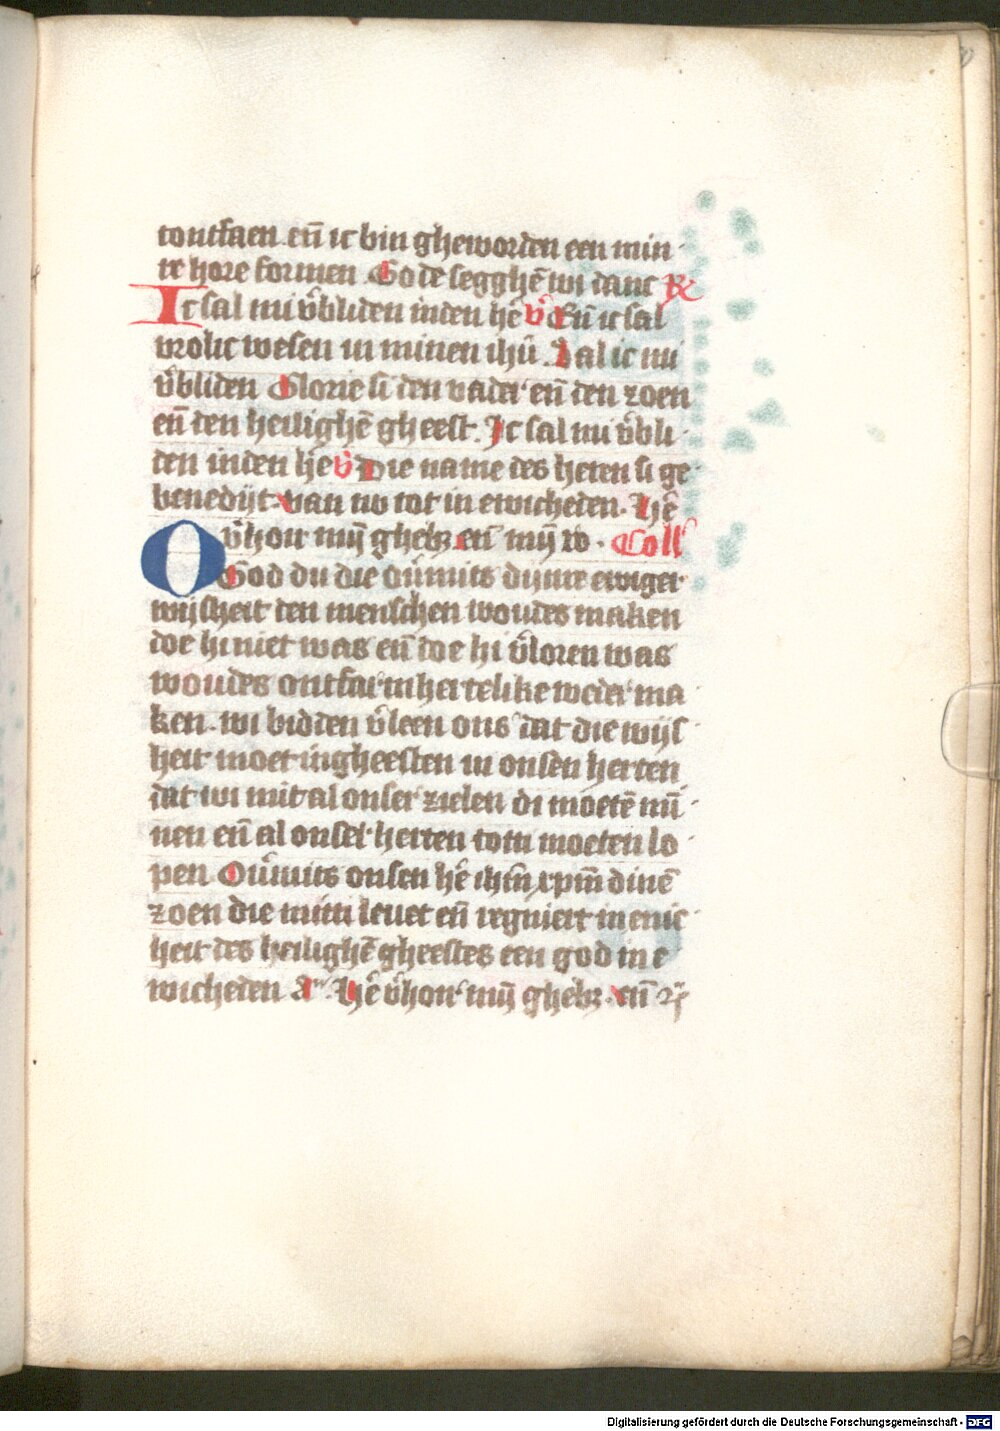 tontfaen. eñ ic bin gheworden een min¬
re hore formen. Gode segghē wi danc R̷
Ic sal mi v̉bliden inden hē v̉ Eñ ic sal
vrolic wesen in minen ihū. Sal ic mi
v̉bliden Glorie si den vader eñ den zoen
eñ den heilighē gheest. Ic sal mi v̉bli¬
den inden hē v̉ Die name des heren si ge¬
benedijt. van nv tot in ewicheden. Hē
v̉hoir mij̄ ghebʒ. eñ mij̄ ro. Coll̄
O God du die ouermits dijnre ewiger
wijsheit den menschen woudes maken
doe hi niet was eñ doe hi v̉loren was
woudes ontfarmhertelike weder ma¬
ken. wi bidden v̉leen ons dat die wijs¬
heit moet ingheesten in onsen herten
dat wi mit al onser zielen di moetē mī¬
nen eñ al onser herten totti moeten lo¬
pen. Ouermits onsen hē ihm̄ xpm̄ dinē
zoen die mitti leuet eñ regniert in enic¬
heit des heilighē gheestes een god in e¬
wicheden Am̄. Hē v̉hoir mij̄ ghebʒ. eñ
Digitalisierung gefördert durch die Deutsche Forschungsgemeinschaft - DFG